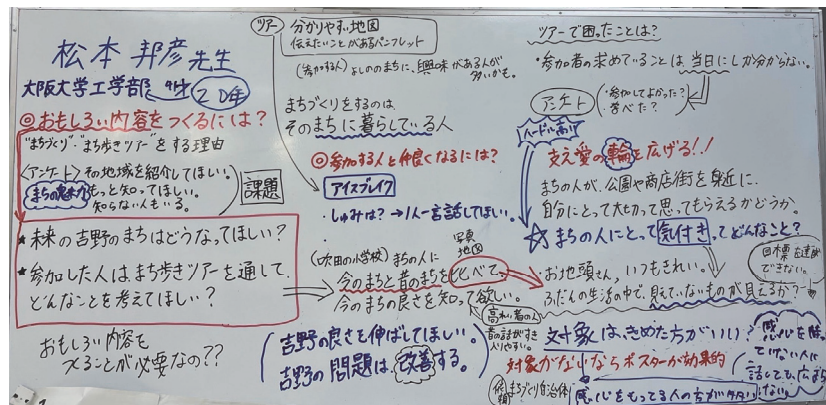 松本 邦彦先生
大阪大学工学部
◎おもしろい内容をつくるには？
"まちづくり"・"まち歩きツアー"をする理由
〈アンケート〉その地域を紹介してほしい。
まちの魅力もっと知ってほしい。
知らない人もいる。
課題
★未来の吉野のまちはどうなってほしい？
★参加した人はまち歩きツアーを通して、
どんなことを考えてほしい？
おもしろい内容を
つくることが必要なの??
ツアー
分かりやすい地図
伝えたいことがあるパンフレット
(参加する人)よしののまちに、興味がある人が
多いかも。
まちづくりをするのは、
そのまちに暮らしている人
◎参加する人と仲良くなるには？
アイスブレイク
・しゅみは？→1人一言話してほしい。
(吹田の小学校)まちの人に
写真
地図
今のまちと昔のまちを比べて、
今のまちの良さを知って欲しい。
吉野の良さを伸ばしてほしい。
吉野の問題は、改善する。
ツアーで困ったことは？
・参加者の求めていることは、当日にしか分からない。
アンケート
・参加してよかった？
・学べた？
ハードルあげ
支え愛の輪を広げる!!
まちの人が、公園や商店街を身近に、
自分にとって大切って思ってもらえるかどうか。
☆まちの人にとって気付きってどんなこと？
目標を達成
できない。
お地蔵さん、いつもきれい。
ふだんの生活の中で、見えていないものが見えるか
対象は、きめた方がいい？
対象がないならポスターが効果的
まちづくり自治体
関心をもってる人の方が
関心を持っ
ていない人に
話しても、広まら
ない。